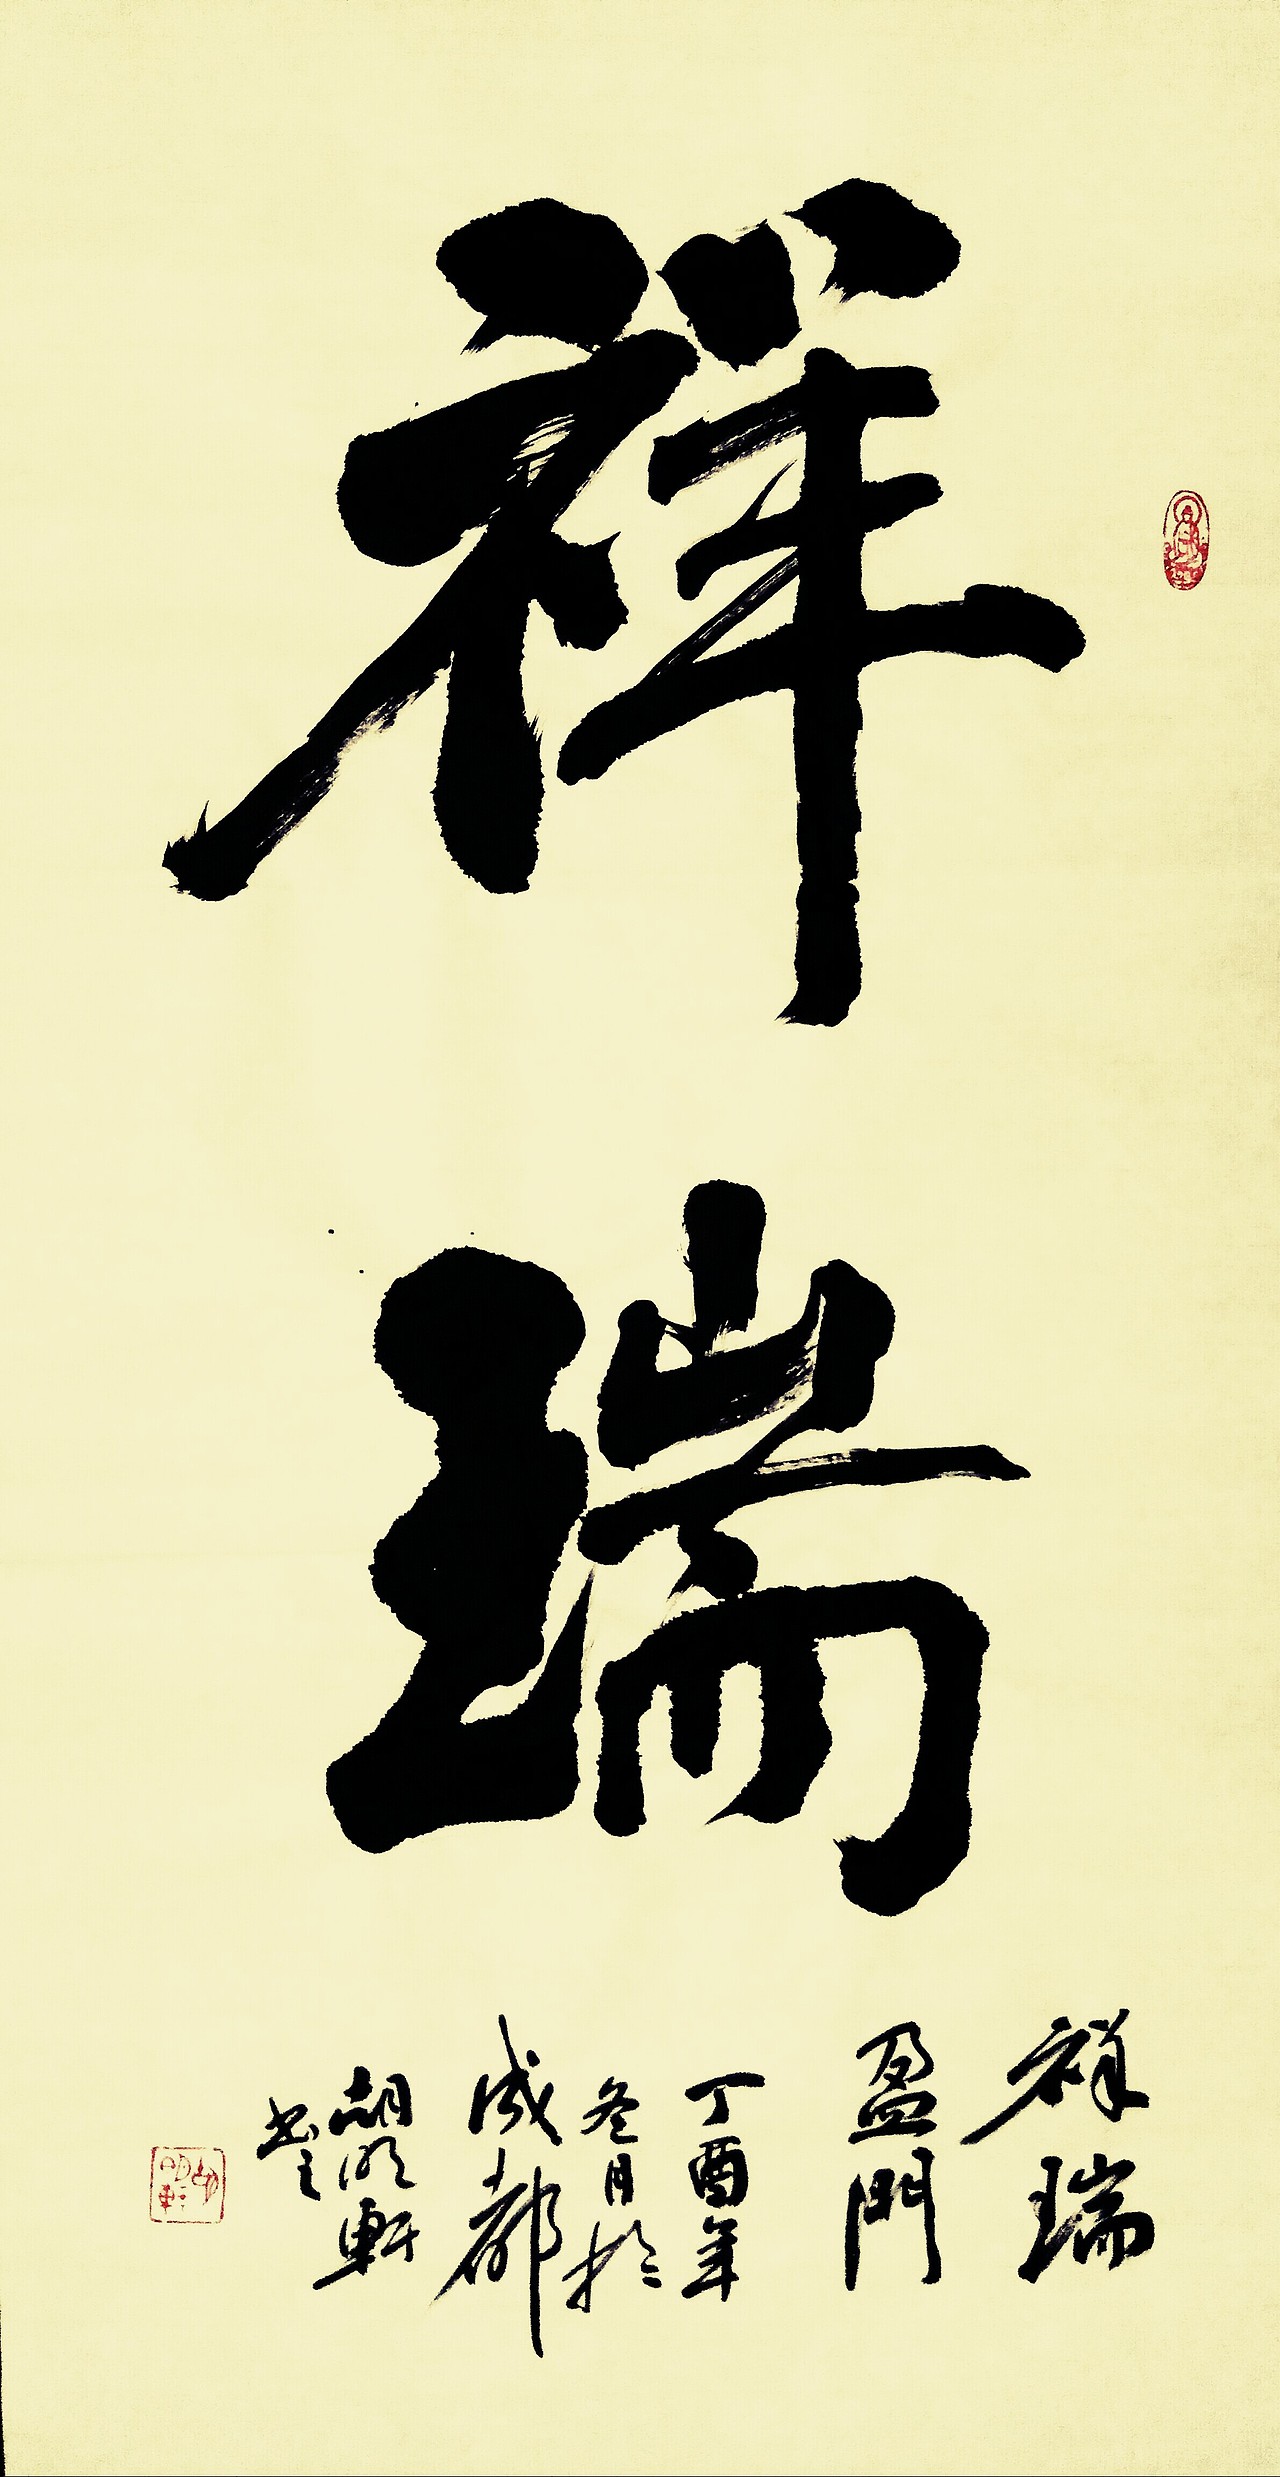 祥瑞
祥瑞
盈門
丁酉年
冬月於
成都
胡明軒
書